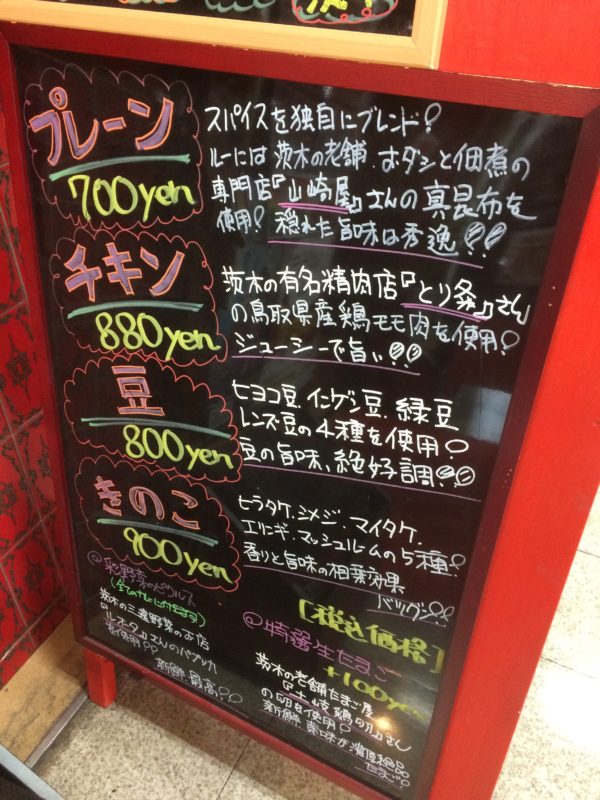 プレーン
700yen
スパイスを独自にブレンド!
ルーには茨木の老舗、おダシと佃煮の
専門店『山崎屋』さんの真昆布を
使用!穏れた旨味は秀逸!!
チキン
880yen
茨木の有名精肉店『とり粂』さん
の鳥取県産鶏モモ肉を使用!
ジューシーで旨い!!
豆
800yen
ヒヨコ豆、インゲン豆、緑豆
レンズ豆の4種を使用!
豆の旨味、絶好調!!
きのこ
900yen
ヒラタケ、シメジ、マイタケ、
エリンギ、マッシュルームの5種!
香りと旨味の相乗効果
バツグン!!
@秋野菜のピクルス
茨木の三邊野菜のお店
さんのパプリカ
を使用!!
新鮮、最高!!
[税込価格]
@特選生たまご
+100yen
茨木の老舗たまご屋
『土岐鶏卵』さん
の卵を使用!
新鮮 黄味が濃厚絶品
たまご!!